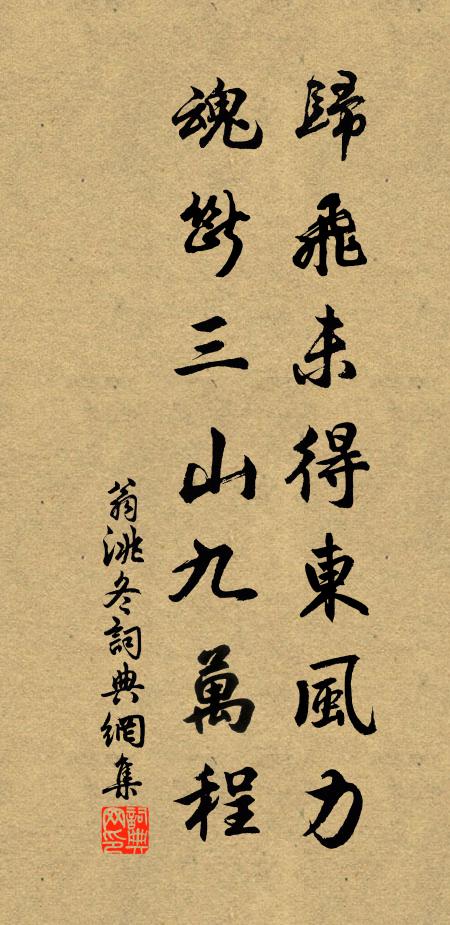 歸飛未得東風力
魂斷三山九萬程
翁洮冬詞典網集
詞典網印